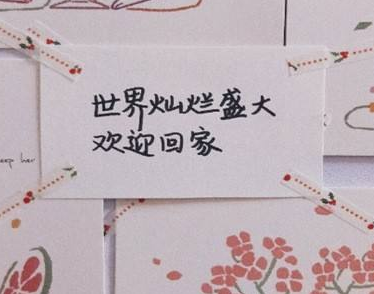 世界灿烂盛大
欢迎回家
eep her